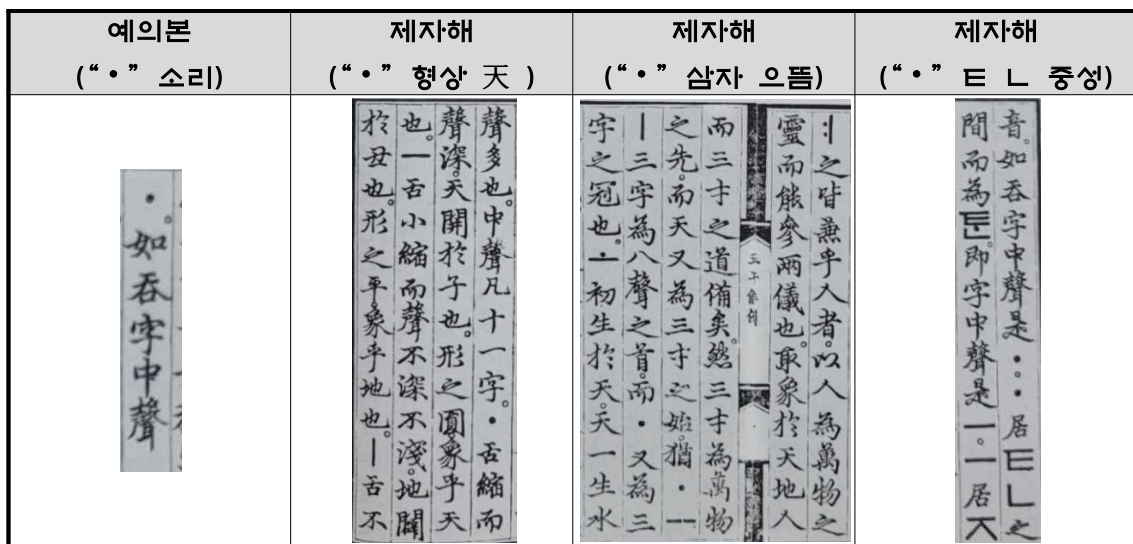 예의본
(“•” 소리)
제자해
(“•” 형상 天 )
제자해
(“•” 삼자 으뜸)
제자해
(“•” ㅌ ㄴ 중성)
ㆍ。如呑字中聲
聲多也。中聲凡十一字。ㆍ舌縮而
聲深。天開於子也。形之圓。象乎天
也。ㅡ舌小縮而聲不深不淺。地闢
於丑也。形之平。象乎地也。ㅣ舌不
ㅕ之皆兼乎人者。以人為萬物之
靈而能參兩儀也。取象於天地人
而三才之道備矣。然三才為萬物
之先。而天又為三才之始。猶ㆍㅡ
ㅣ三字為八聲之首。而ㆍ又為三
字之冠也。ㆍ初生於天。天一生水
音。如呑字中聲是ㆍ。ㆍ居ㅌㄴ之
間而為ᄐᆞᆫ。即字中聲是ㅡ。ㅡ居ㅈ